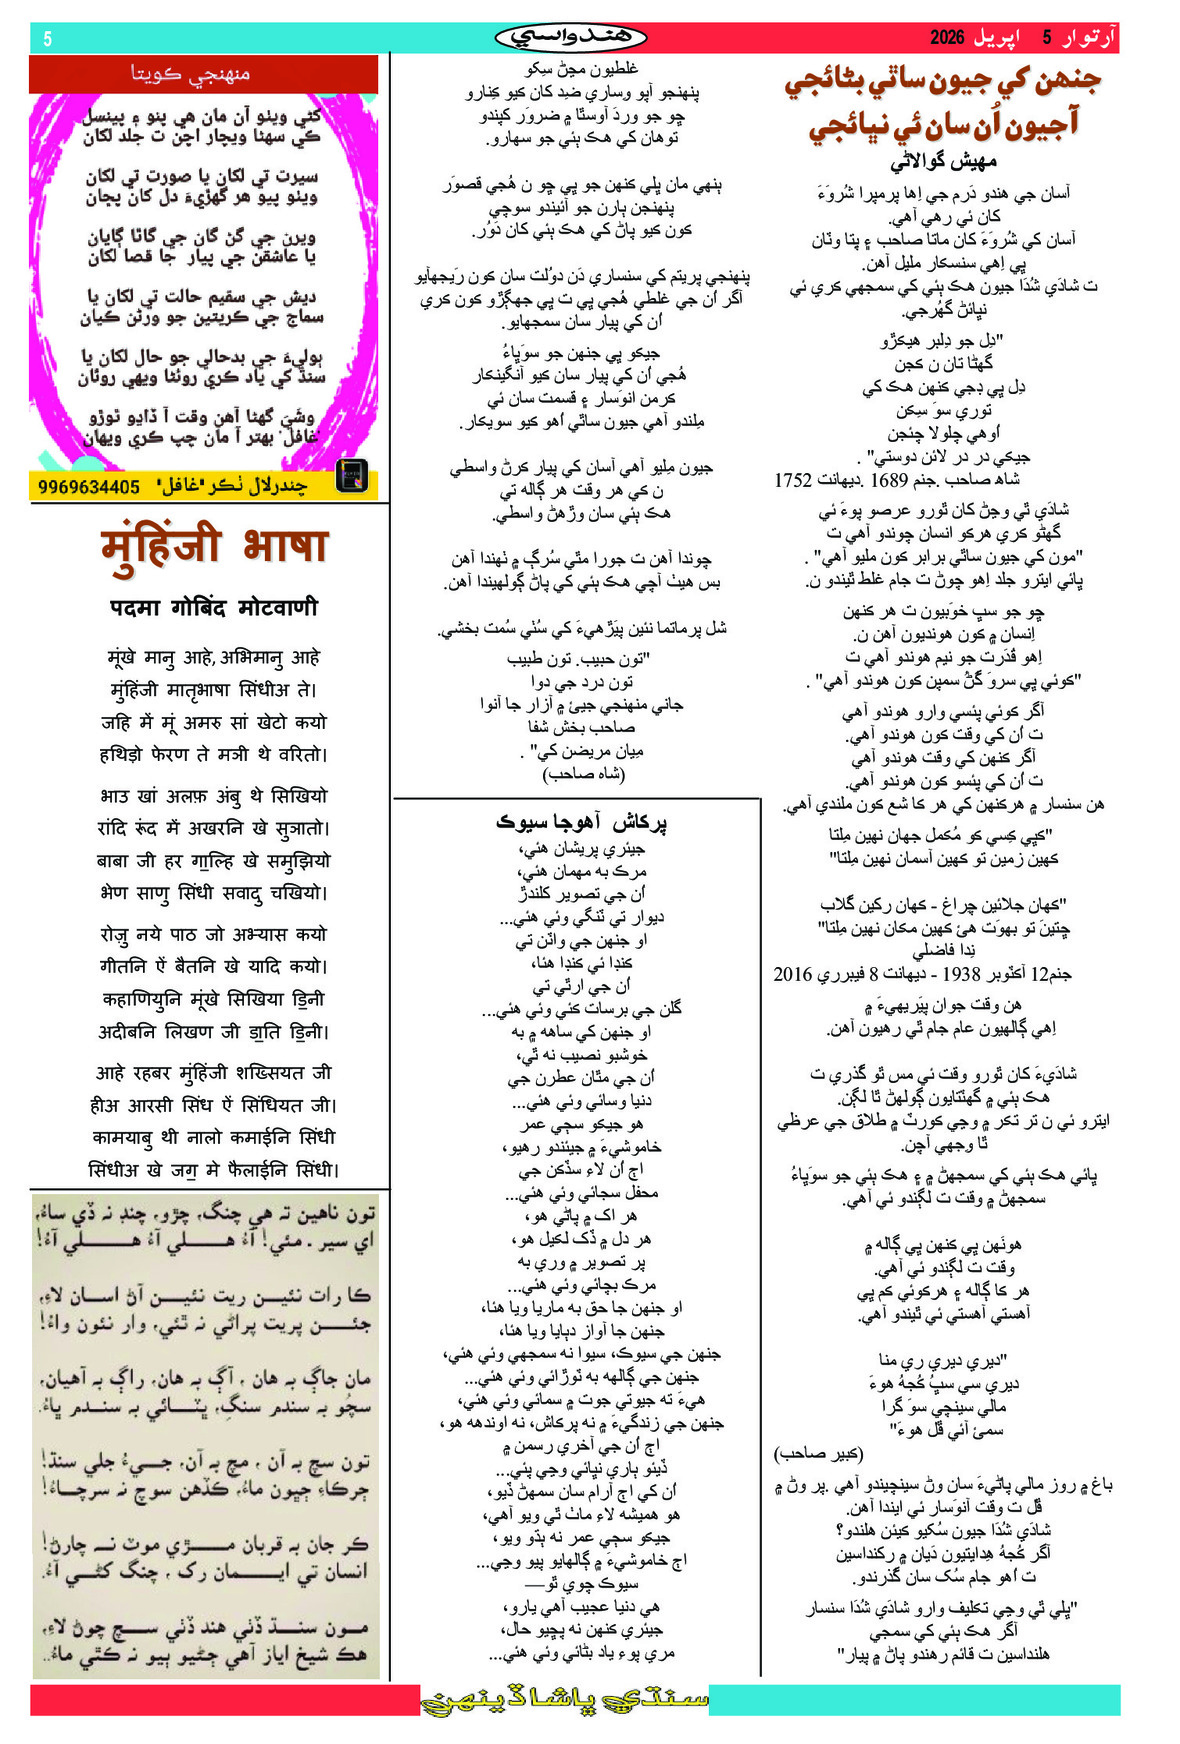 آرتوار 5 اپريل 2026
هندواسي
5
جنهن کي جيون ساٿي بڻائجي
آجيون اُن سان ئي نڀائجي
مهيش گوالاڻي
آسان جي هندو ڌرم جي اِها پرمپرا شُروَءَ
کان ئي رهي آهي.
آسان کي شُروَءَ کان ماتا صاحب ۽ پتا وٽان
پي اِهي سنسڪار مليل آهن.
ت شادَي شُدَا جيون هڪ ٻئي کي سمجهي ڪري ئي
نڀائڻ گهُرجي.
"دِل جو دِلبر هيڪڙو
گهڻا تان ن ڪجن
دِل پي دِجي ڪنهن هڪ کي
توري سوَ سِڪن
اُوهي چلولا چئجن
جيڪي در در لائن دوستي" .
شاھ صاحب .جنم 1689 .ديهانت 1752
شادَي ٿي وڃڻ کان ٿورو عرصو پوءَ ئي
گهڻو ڪري هرڪو انسان چوندو آهي ت
"مون کي جيون ساٿي برابر ڪون مليو آهي" .
ڀائي ايترو جلد اِهو چوڻ ت جام غلط ٿيندو ن.
ڇو جو سڀ خوَبيون ت هر ڪنهن
اِنسان ۾ ڪون هونديون آهن ن.
اِهو قُدَرت جو نيم هوندو آهي ت
"ڪوئي پي سروَ گُڻ سمپن ڪون هوندو آهي" .
اگر ڪوئي پئسي وارو هوندو آهي
ت اُن کي وقت ڪون هوندو آهي.
اگر ڪنهن کي وقت هوندو آهي
ت اُن کي پئسو ڪون هوندو آهي.
هن سنسار ۾ هرڪنهن کي هر ڪا شع ڪون ملندي آهي.
"ڪڀي ڪِسي کو مُڪمل جهان نهين مِلتا
ڪهين زمين تو ڪهين آسمان نهين مِلتا"
"ڪهان جلائين چراغ - ڪهان رکين گلاب
ڇتينَ تو بهوَت هئ ڪهين مڪان نهين مِلتا"
نِدا فاضلي
جنم12 آکٽوبر 1938 - ديهانت 8 فيبرري 2016
هن وقت جوان پيَڙيهيءَ ۾
اِهي ڳالهيون عام جام ٿي رهيون آهن.
شاديَءَ کان ٿورو وقت ئي مس ٿو گذري ت
هڪ ٻئي ۾ گهٽتايون ڳولهڻ ٿا لڳن.
ايترو ئي ن تر تڪر ۾ وڃي ڪورٽ ۾ طلاق جي عرظي
ٿا وجهي آچن.
ڀائي هڪ ٻئي کي سمجهڻ ۾ ۽ هڪ ٻئي جو سوَڀاءُ
سمجهڻ ۾ وقت ت لڳندو ئي آهي.
هونَهن پي ڪنهن پي ڳاله ۾
وقت ت لڳندو ئي آهي.
هر ڪا ڳاله ۽ هرڪوئي ڪم پي
آهستي آهستي ئي ٿيندو آهي.
"ديري ديري ري منا
ديري سي سڀُ ڪُجهُ هوءَ
مالي سينچي سوَ گرا
سمئ آئي ڦل هوءَ"
(ڪبير صاحب)
باغ ۾ روز مالي پاڻيءَ سان وڻ سينچيندو آهي .پر وڻ ۾
ڦُل ت وقت آنوَسار ئي ايندا آهن.
شادَي شُدَا جيون سُکيو ڪيئن هلندو؟
اگر ڪُجهُ هِدايتيون ڌيان ۾ رکنداسين
ت اُهو جام سُک سان گذرندو.
"ڀلي ٿي وڃي تڪليف وارو شادَي شُدَا سنسار
اگر هڪ ٻئي کي سمجي
هلنداسين ت قائم رهندو پاڻ ۾ پيار"
غلطيون مڃڻ سِکو
پنهنجو آپو وساري ضِد کان ڪيو ڪِنارو
ڇو جو وردَ آوستَا ۾ ضروَر ڪَڀندو
توهان کي هڪ ٻئي جو سهارو.
ٻنهي مان ڀلي ڪنهن جو پي ڇو ن هُجي قصوَر
پنهنجن ٻارن جو آئيندو سوچي
ڪون ڪيو پاڻ کي هڪ ٻئي کان دَوُر.
پنهنجي پريتم کي سنساري ڌَن دولت سان ڪون رَيجهايو
اگر اُن جي غلطي هُجي پي ت پي جهڳڙو ڪون ڪري
اُن کي پيار سان سمجهايو.
جيڪو پي جنهن جو سوَڀاءُ
هُجي اُن کي پيار سان ڪيو آنگينڪار
ڪرمن انوَسار ۽ قسمت سان ئي
مِلندو آهي جيون ساٿي اُهو ڪيو سويڪار.
جيون مِليو آهي آسان کي پيار ڪرڻ واسطي
ن کي هر وقت هر ڳاله تي
هڪ ٻئي سان وڙهڻ واسطي.
چوندا آهن ت جورا مٿي سُرڳ ۾ ٺهندا آهن
بس هيٺ آچي هڪ ٻئي کي پاڻ ڳولهيندا آهن.
شل پرماتما نئين پيَڙهيءَ کي سُٺي سُمت بخشي.
"تون حبيب. تون طبيب
تون درد جي دوا
جاني منهنجي جيئ ۾ آزار جا آنوا
صاحب بخش شفا
مِيان مريضن کي" .
(شاه صاحب)
پرڪاش آهوجا سيوڪ
جيئري پريشان هئي،
مرڪ به مهمان هئي،
اُن جي تصوير کلندڙ
ديوار تي ٽنگي وئي هئي...
او جنهن جي واٽن تي
ڪنڊا ئي ڪنڊا هئا،
اُن جي ارٿي تي
گلن جي برسات ڪئي وئي هئي...
او جنهن کي ساهه ۾ به
خوشبو نصيب نه ٿي،
اُن جي مٿان عطرن جي
دنيا وسائي وئي هئي...
هو جيڪو سڄي عمر
خاموشيءَ ۾ جيئندو رهيو،
اڄ اُن لاءِ سڏڪن جي
محفل سجائي وئي هئي...
هر اک ۾ پاڻي هو،
هر دل ۾ ڏک لکيل هو،
پر تصوير ۾ وري به
مرڪ بچائي وئي هئي...
او جنهن جا حق به ماريا ويا هئا،
جنهن جا آواز دٻايا ويا هئا،
جنهن جي سيوڪ، سيوا نه سمجهي وئي هئي،
جنهن جي ڳالهه به ٽوڙائي وئي هئي...
هيءَ ته جيوتي جوت ۾ سمائي وئي هئي،
جنهن جي زندگيءَ ۾ نه پرڪاش، نه اونده هو،
اڄ اُن جي آخري رسمن ۾
ڏيئو ٻاري نڀائي وڃي پئي...
اُن کي اڄ آرام سان سمهڻ ڏيو،
هو هميشه لاءِ ماٺ ٿي ويو آهي،
جيڪو سڄي عمر نه ٻڌو ويو،
اڄ خاموشيءَ ۾ ڳالهايو پيو وڃي...
سيوڪ چوي ٿو—
هي دنيا عجيب آهي يارو،
جيئري ڪنهن نه پڇيو حال،
مري پوءِ ياد بڻائي وئي هئي...
منهنجي ڪويتا
ڪٿي ويٺو آن مان هي پنو ۽ پينسل
ڪي سهڻا ويچار اچن ت جلد لکان
سيرت تي لکان يا صورت تي لکان
ويٺو پيو هر گهڙيءَ دل کان پڇان
ويرن جي گن گان جي گاٿا ڳايان
يا عاشقن جي پيار جا قصا لکان
ديش جي سقيم حالت تي لکان يا
سماج جي ڪريتين جو ورڻن ڪيان
ٻوليءَ جي بدحالي جو حال لکان يا
سنڌ کي ياد ڪري روئڻا ويهي روئان
وشَيَ گهڻا آهن وقت آ ڏاڍو ٿوڙو
'غافل' بهتر آ مان چپ ڪري ويهان
چندرلال ٺڪر "غافل" 9969634405
मुंहिंजी भाषा
पदमा गोबिंद मोटवाणी
मूंखे मानु आहे, अभिमानु आहे
मुंहिंजी मातृभाषा सिंधीअ ते।
जहि में मूं अमरु सां खेटो कयो
हथिड़ो फेरण ते मञी थे वरितो।
भाउ खां अलफ़ अंबु थे सिखियो
रांदि रूंद में अखरनि खे सुञातो।
बाबा जी हर गा॒ल्हि खे समुझियो
भेण साणु सिंधी सवादु चखियो।
रोज़ु नये पाठ जो अभ्यास कयो
गीतनि ऐं बैतनि खे यादि कयो।
कहाणियुनि मूंखे सिखिया डि॒नी
अदीबनि लिखण जी डा॒ति डि॒नी।
आहे रहबर मुंहिंजी शख्सियत जी
हीअ आरसी सिंध ऐं सिंधियत जी।
कामयाबु थी नालो कमाईनि सिंधी
सिंधीअ खे जगु॒ मे फैलाईनि सिंधी।
تون ناهين ته هي چنگ، چڙو، چنڊ نه ڏي ساءُ،
اي سير ـ مئي! آءُ هلي آءُ هلي آءُ!
ڪا رات نئين ريت نئين آڻ اسان لاءِ،
جئن پريت پراڻي نه ٿئي، وار نئون واءُ!
مان جاڳ به هان ، آڳ به هان، راڳ به آهيان،
سچو به سندم سنگِ، ڀٽائي به سندم ڀاءُ.
تون سچ به آن ، مچ به آن، جيءُ جلي سنڌ!
جرڪاءِ جڀون ماءُ، ڪڏهن سوچ نه سرچاءُ!
ڪر جان به قربان مڙي موٽ نه چارڻ!
انسان تي ايمان رک ، چنگ کڻي آءُ.
مون سنڌ ڏٺي هند ڏٺي سچ چوڻ لاءِ،
هڪ شيخ اياز آهي ڄڻيو ٻيو نه ڪٿي ماءُ..
سنڌي ڀاشا ڏينهن